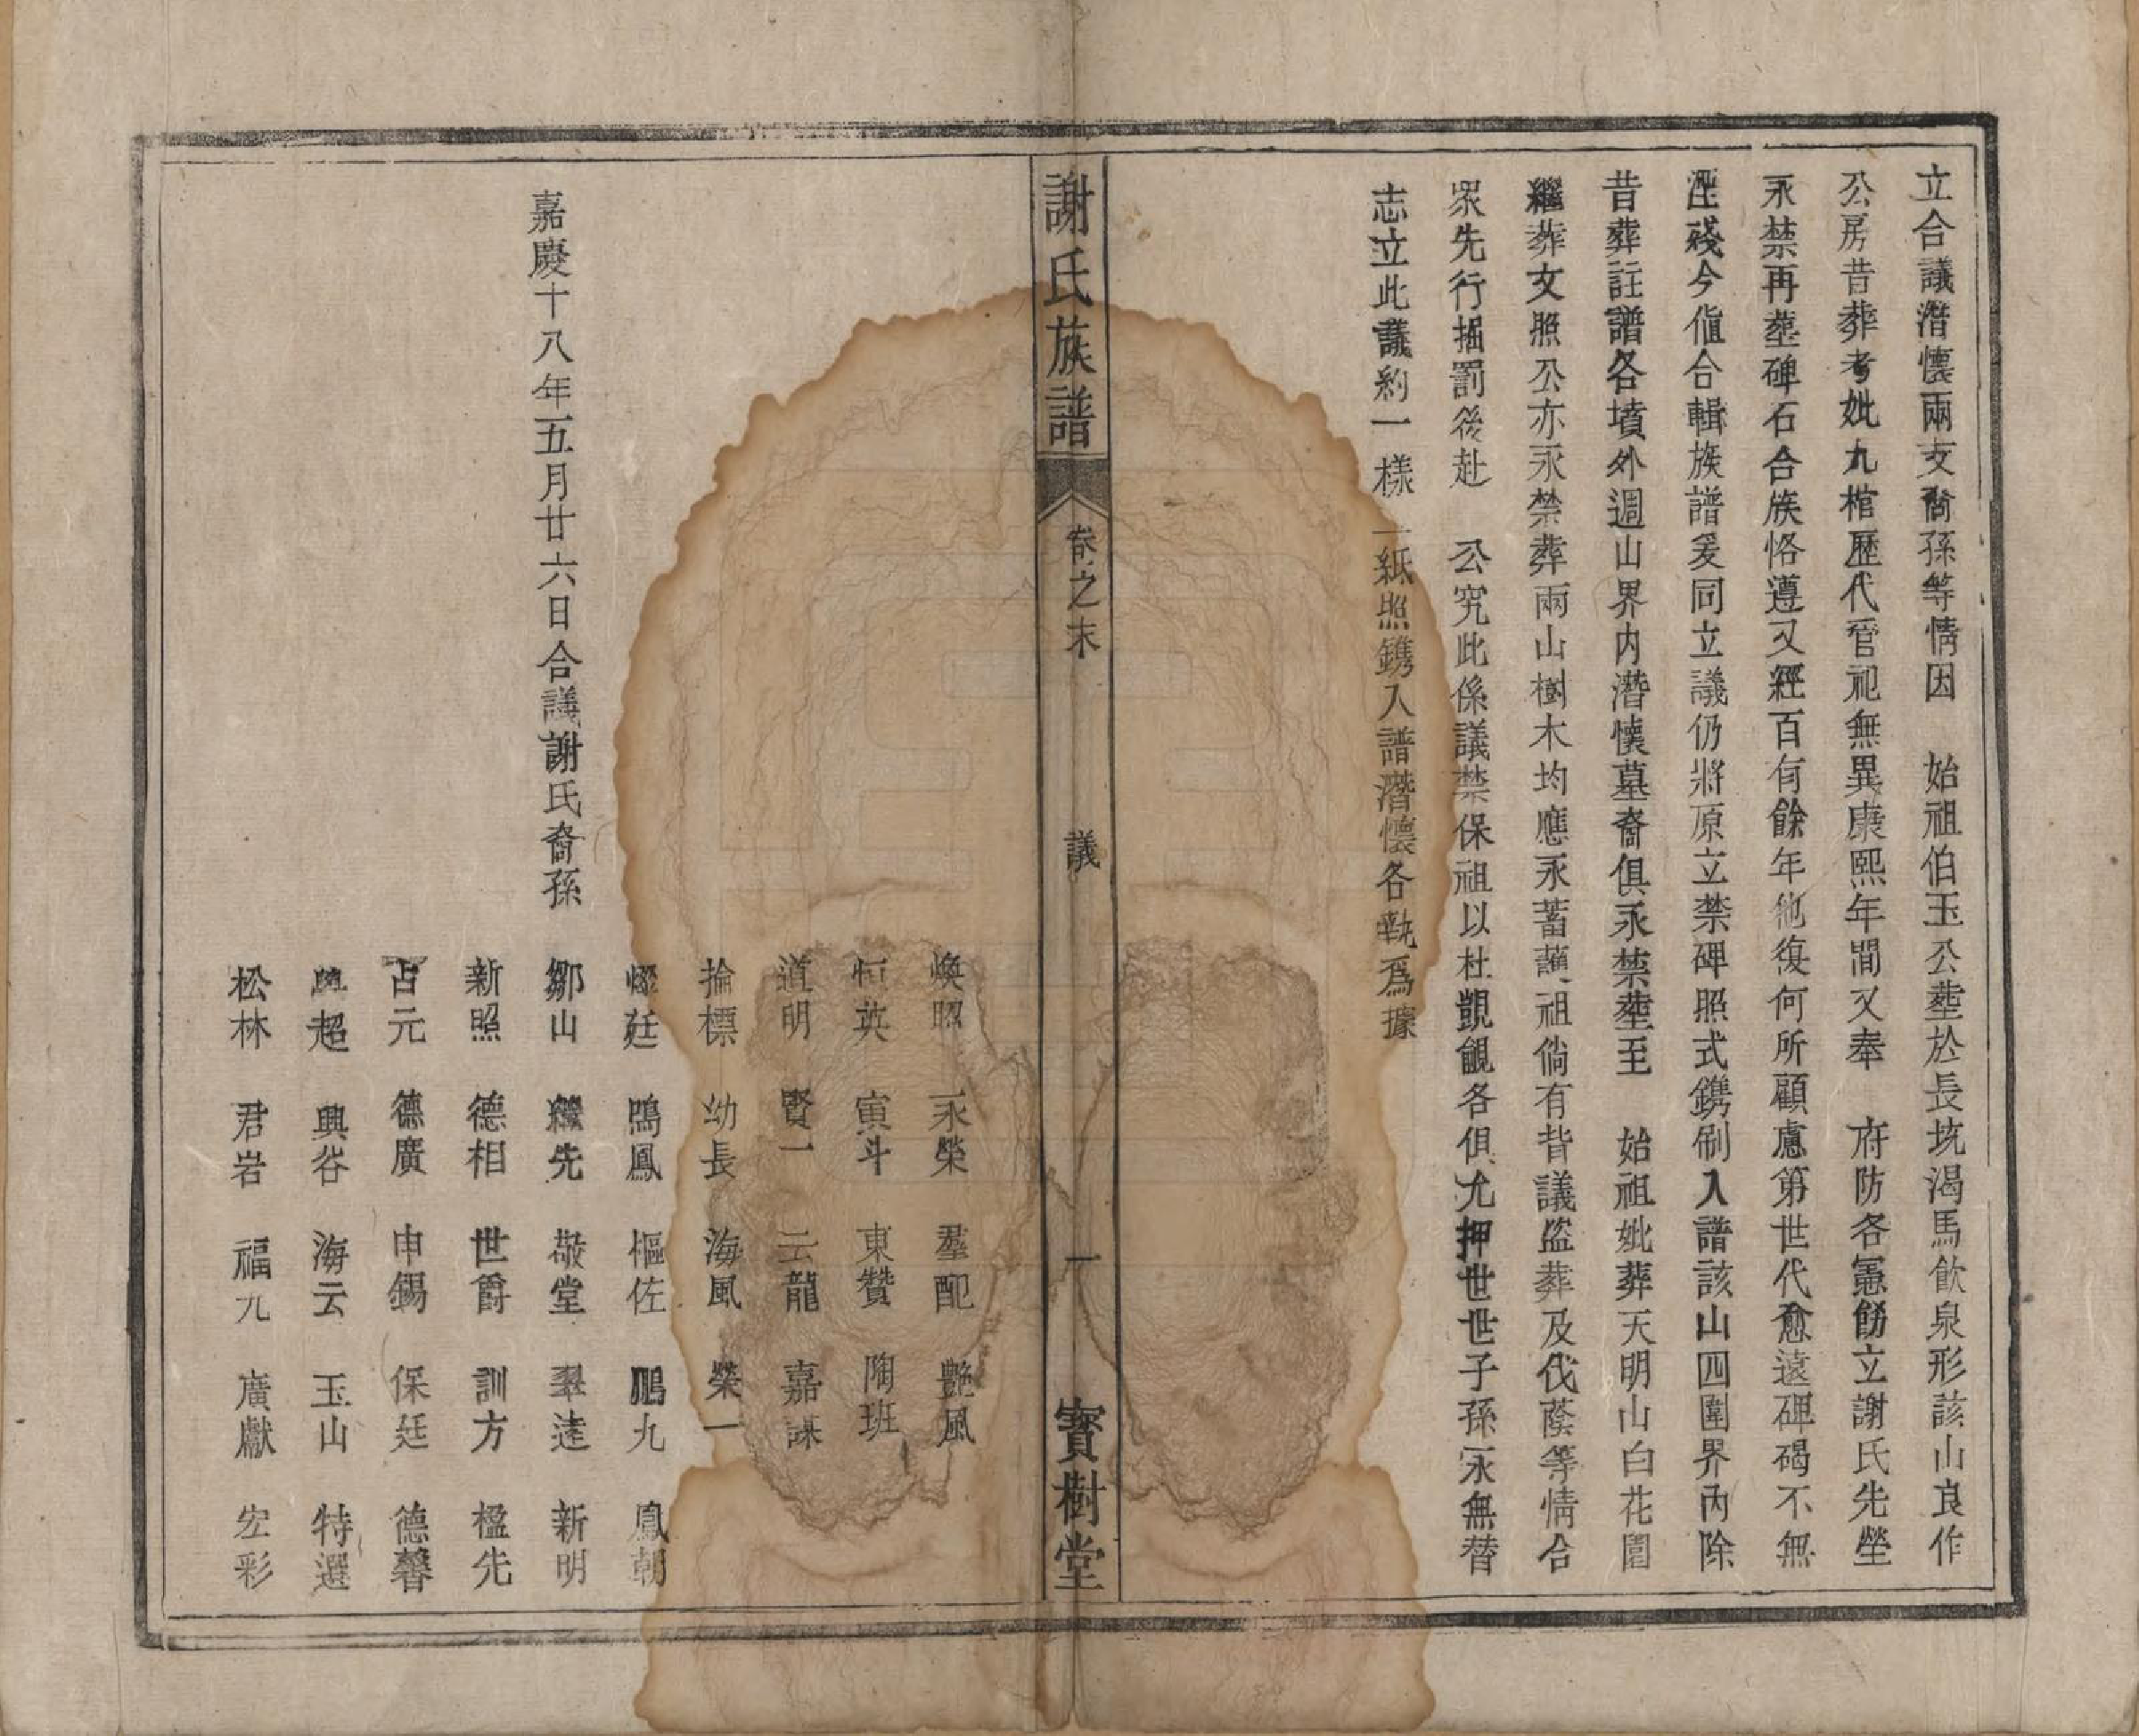 立合議潛懷兩支裔孫等情因　始祖伯玉公塟於長坑渴馬飲泉形該山良作
公房昔葬考妣九棺歷代管祀無異康熙年間又奉　府防各憲飭立謝氏先塋
永禁再塟碑石合族恪遵又經百有餘年他復何所顧慮第世代愈遠碑碣不無
湮殘今值合輯族譜爰同立議仍將原立禁碑照式鐫刷入譜該山四圍界內除
昔葬註譜各墳外週山界內潛懷墓裔俱永禁塟至　始祖妣葬天明山白花園
繼葬文照公亦永禁葬兩山樹木均應永蓄蔭祖倘有背議盜葬及伐蔭等情合
眾先行掘罰後赴　公究此係議禁保祖以杜覬覦各俱允押世世子孫永無替
志立此議約一樣二紙照鐫入譜潛懷各執為據
謝氏族譜　卷之末　議　一　寶樹堂
煥照　永榮　羣配　艷風
恒英　寅斗　東贊　陶班
道明　賢一　云龍　嘉謀
掄標　幼長　海風　榮一
燦廷　鳴鳳　樞佐　鵬九　鳳朝
嘉慶十八年五月廿六日合議謝氏裔孫　鄒山　繼先　敬堂　翠逵　新明
新照　德相　世爵　訓方　楹先
占元　德廣　申錫　保廷　德馨
超　興谷　海云　玉山　特選
松林　君岩　福九　廣獻　宏彩